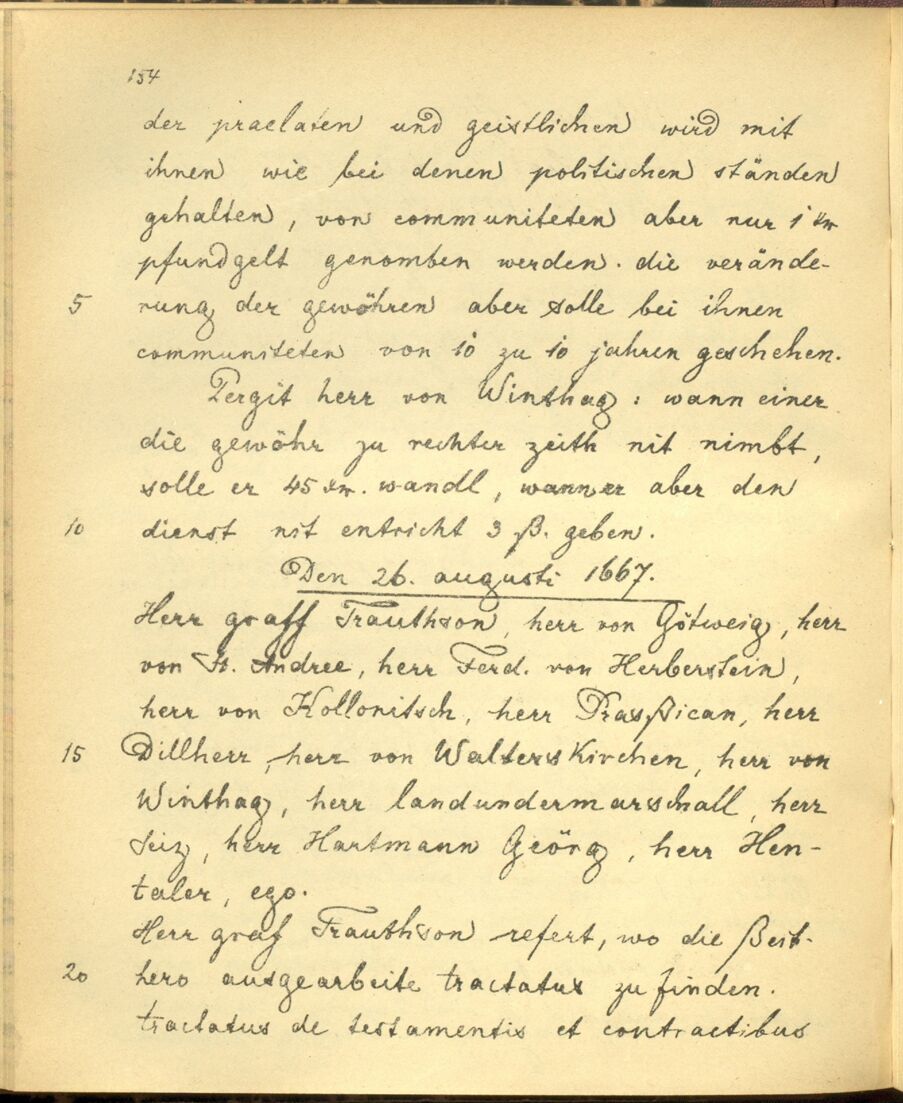 154
der praelaten und geistlichen wird mit
ihnen wie bei denen politischen ständen
gehalten, von communiteten aber nur 1 xr
pfundgelt genomben werden. die verände-
5 rung der gewöhren aber solle bei ihnen
communiteten von 10 zu 10 jahren geschehen.
Pergit herr von Winthag: wann einer
die gewöhr zu rechter zeith nit nimbt,
solle er 45 xr. wandl, wann er aber den
10 dienst nit entricht 3 ß. geben.
Den 26. augusti 1667.
Herr graff Trauthson, herr von Götweig, herr
von St. Andree, herr Ferd. von Herberstein,
herr von Kollonitsch, herr Praßican, herr
15 Dillherr, herr von Walterskirchen, herr von
Winthag, herr landundermarschall, herr
Seiz, herr Hartmann Geörg, herr Hen-
taler, ego.
Herr graf Trauthson refert, wo die ßeit-
20 hero ausgearbeite tractatus zu finden.
tractatus de testamentis et contractibus